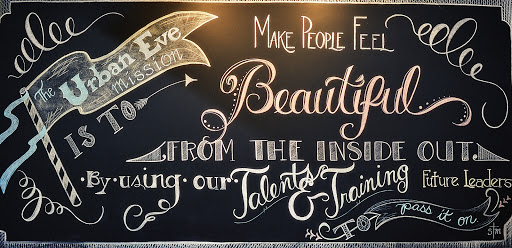 The Urban Eve
mission
IS TO
MAKE PEOPLE FEEL
Beautiful
FROM THE INSIDE OUT
By using our Talents & Training
TO Future Leaders
pass it on